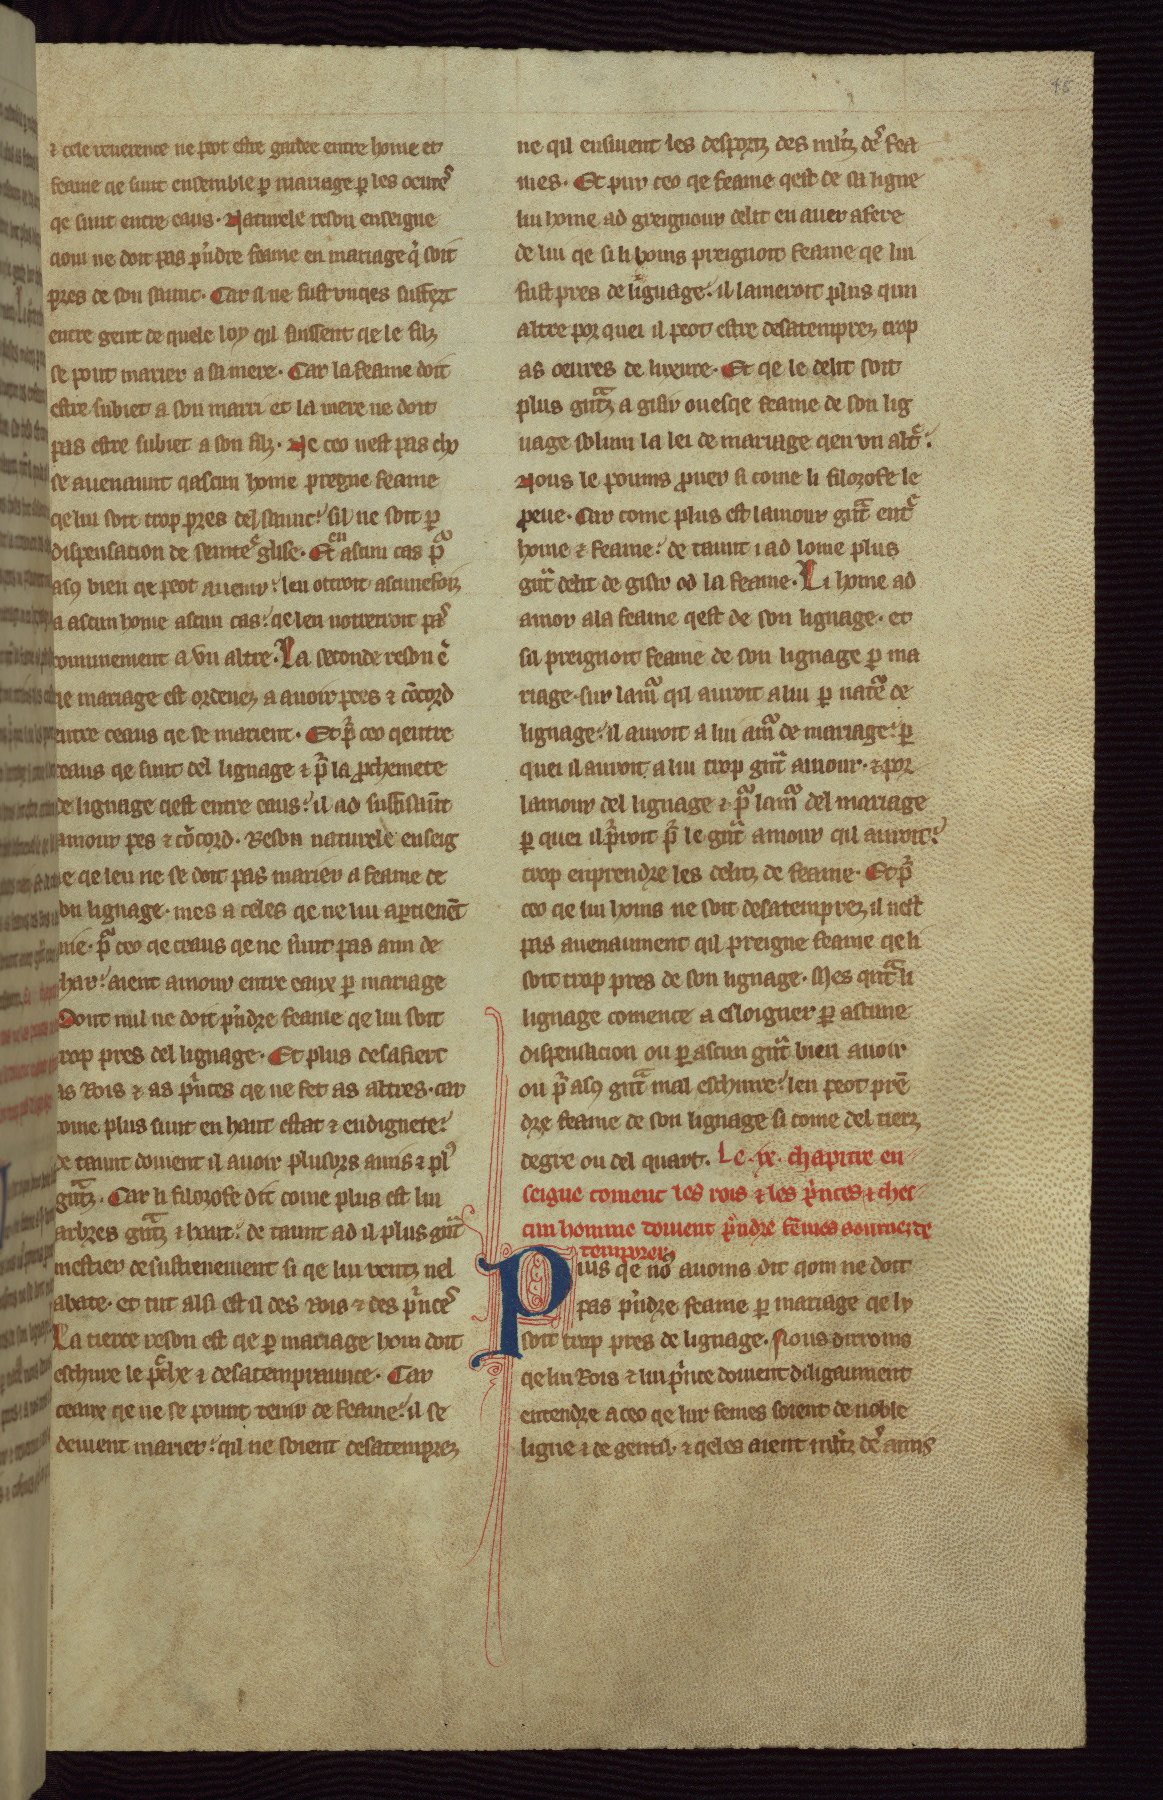 ⁊ cele reuerence ne peot estre gardee entre home et
feame qe sunt ensemble ꝑ mariage ꝑ les oeurͤs
qe sunt entre eaus. Naturele reson enseigne
qom ne doit pas pͥndre feame en mariage qͥ soit
pres de son saunc. Car il ne fust vnqes suffert
entre gent de quele loy qil fuissent qe le filz
se pout marier a sa mere. Car la feame doit
estre subiet a son marri et la mere ne doit
pas estre subiet a son filz. Ne ceo nest pas cho
se auenaunt qascun home pregne feame
qe lui soit trop pres del saunc: sil ne soit ꝑ
dispensation de seinte eglise. Et en ascun cas pͬ
ascͻ bien qe peot auenir: leu otroit ascunefoiz
a ascun home ascun cas: qe leu notteroit pas
comunement a vn altre. La seconde reson ē
qe mariage est ordenez a auoir pees & cōcord
entre ceaus qe se marient. Et pͬ ceo qentre
ceaus qe sunt del lignage & pͬ la ꝓchemete
de lignage qest entre eaus: il ad suffisaūt
amour pes & cōcord. Reson naturele enseig
ne qe leu ne se doit pas marier a feame de
son lignage. mes a celes qe ne lui aꝑtienēt
mie. pͬ ceo qe ceaus qe ne sunt pas ami de
char: aient amour entre eaux ꝑ mariage
Dont nul ne doit pͥndre feame qe lui soit
trop pres del lignage. Et plus desafiert
as Rois & as pͥnces qe ne fet as altres. car
come plus sunt en haut estat & en dignete:
de taunt doiuent il auoir plusors amis & plͻ
gūtz. Car li filozofe dit come plus est lui
arbres gūtz & haut: de taunt ad il plus gūt
mestier de sustienement si qe lui ventz nel
abate. et tut alsi est il des Rois & des pͥnces
La tierce reson est qe ꝑ mariage hom doit
eschure le peche & desatemprance. Car
ceaux qe ne se pount tenir de feame: il se
deiuent marier: qil ne soient desatemprez
ne qil ensiuent les desportz des mlt̄z des fea
mes. Et pur ceo qe feame qest de sa ligne
lui home ad greignour delit en auer afere
de lui qe si li homs preignoit feame qe lui
fust pres de lignage: il lameroit plus qun
altre por quei il peot estre desatemprez trop
as oeures de luxure. Et qe le delit soit
plus gūtz a gisir ouesqe feame de son lig
nage solunt la lei de mariage qen vn altͤ:
Nous le poums prouer si come li filozofe le
ꝓeue. Car come plus est lamour gūt entͤ
home & feame: de taunt i ad lome plus
gūt delit de gisir od la feame. Li home ad
amor a la feame qest de son lignage. et
sil preignoit feame de son lignage ꝑ ma
riage. sur lamͬ qil auroit a lui ꝑ natͤ de
lignage: il auroit a lui amͬ de mariage: ꝑ
quei il auroit a lui trop gūt amour. & por
lamour del lignage & pͬ lamͬ del mariage
ꝑ quei il pͥroit pͬ le gūt amour qil auroit:
trop enprendre les delitz de feame. Et pͬ
ceo qe lui homs ne soit desatemprez il nest
pas auenaument qil preigne feame qe li
soit trop pres de son lignage. Mes qūt li
lignage comence a esloigner ꝑ ascune
dispensacion ou ꝑ ascun gūt bien auoir
ou pͬ ascͻ gūt mal eschiure: leu peot prē
dre feame de son lignage si come del tierz
degre ou del quart. Le .ix. chapitre en
seigne coment les rois & les pͥnces & ches
cun homme doiuent pͥndre fēmes a
temprez
Puis qe noͻ auoms dit qom ne doit
pas pͥndre feame ꝑ mariage qe ly
soit trop pres de lignage. Nous dirroms
qe lui Rois & lui pͥnce doiuent diligaument
entendre a ceo qe lur femes soient de noble
ligne & de gentil. & qeles aient mlt̄z des amis